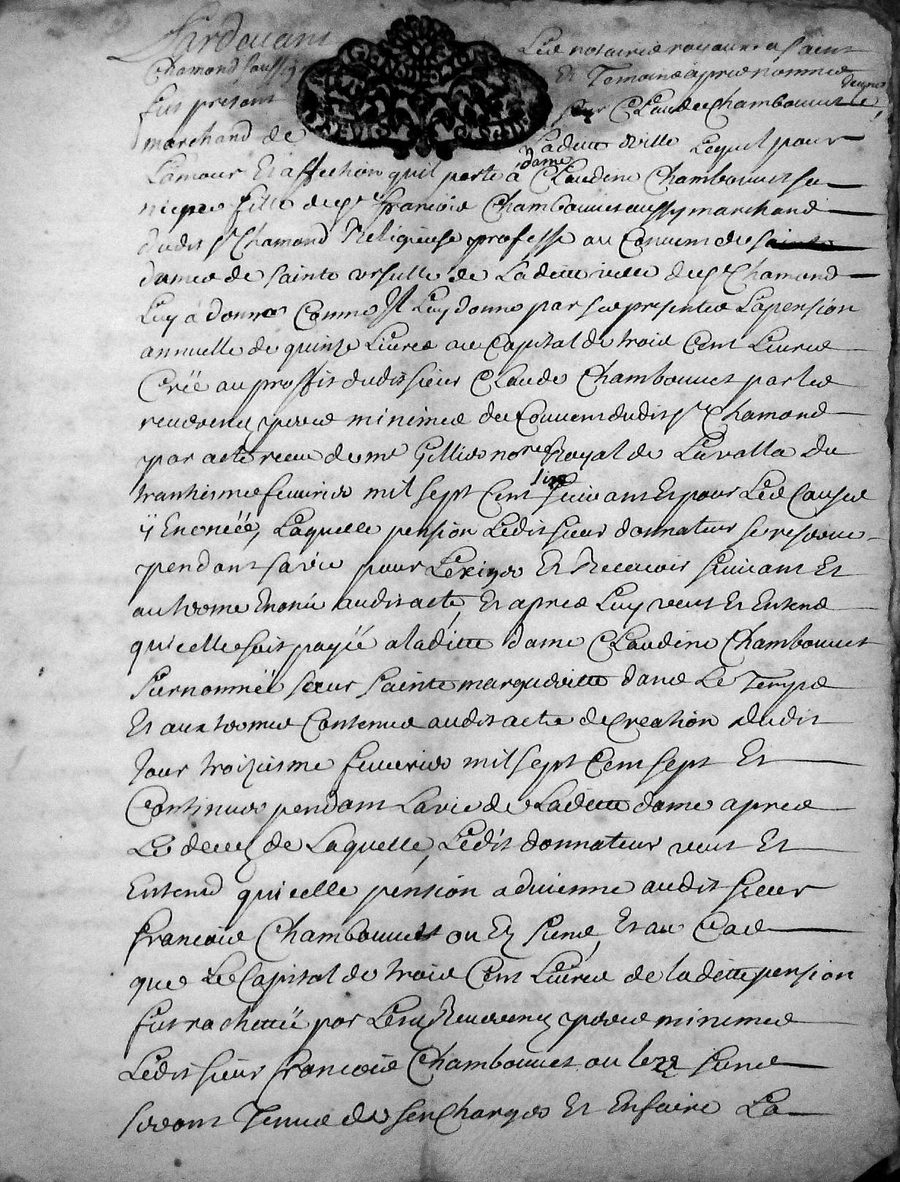 Pardevant Les notaires royaux a saint
Chamond soussig et Temoins apres nommes
fut present sieur Claude Chambouvet
marchand de Laditte ville Lequel pour
Lamour Et affection quil porte à dame Claudine Chambouvet sa
niepce fille de sr francois Chambouvet aussy marchand
dudit st Chamond Religieuse professe au Couvent des
dames de sainte ursulle de Laditte ville de st Chamond
Luy à donné Comme Il Luy donne par ses presentes La pension
annuelle de quinze Livres au Capital de trois Cent Livres
Créé au proffit dudit sieur Claude Chambouvet par les
reverens peres minimes du Couvent dudit st Chamond
par acte receu de me Gillier nore Royal de Lavalla du
mil sept Cent suivant Et pour Les Causes
ÿ Enoncéé, Laquelle pension Ledit sieur donnateur se reserve
pendant sa vie pour Lexiger Et Recevoir suivant Et
au terme Enoncé audit acte, Et apres Luy veut Et Entend
quicelle soit payéé a laditte dame Claudine Chambouvet
surnommée sœur sainte margueritte dans Le Temps
Et aux termes Contenus audit acte de Creation dudit
Jour troizieme fevrier mil sept Cent sept Et
Continuer pendant La vie de Laditte dame apres
Le deces de Laquelle, Ledit donnateur veut Et
Entend quicelle pension advienne audit sieur
francois Chambouvet ou Es siens, Et au Cas
que Le Capital de trois Cent Livres de laditte pension
fut rachettéé par Lesd Reverens peres minimes
Ledit sieur francois Chambouvet ou les siens
seront Tenus de sen Charger Et En faire La